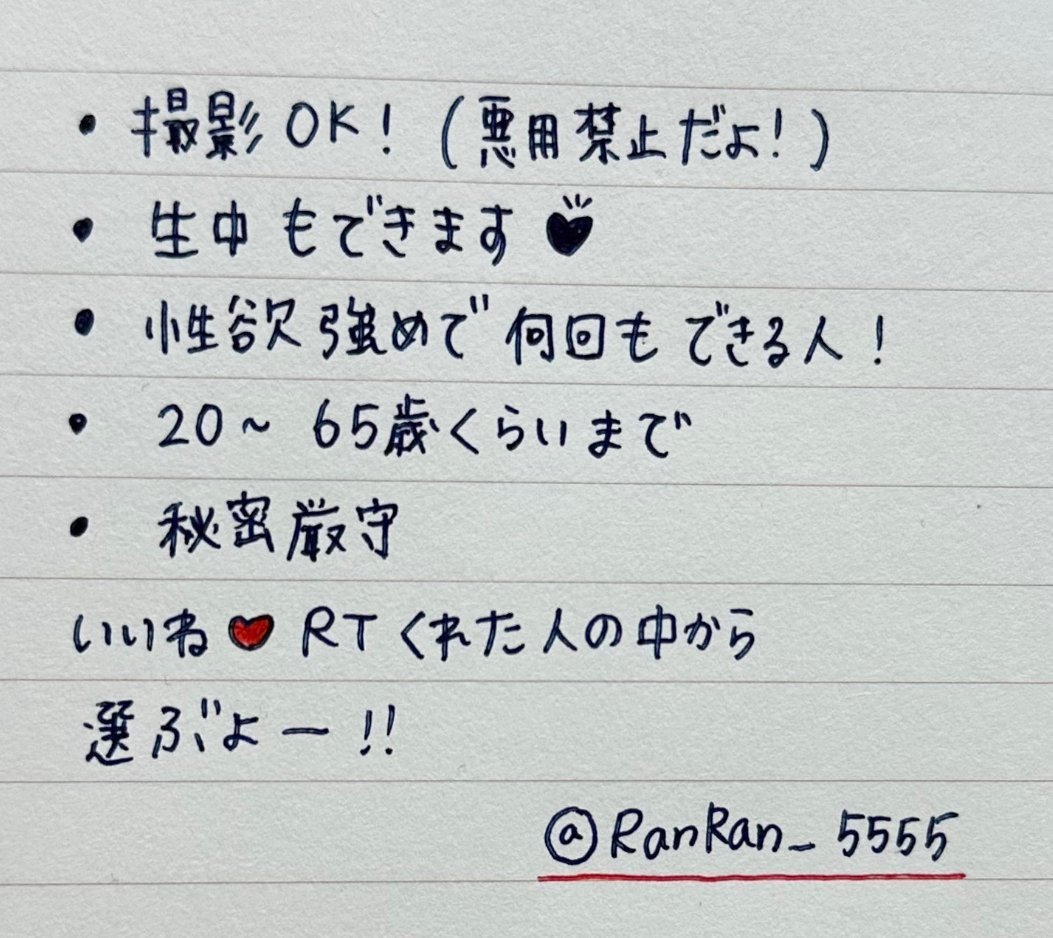 • 撮影OK!(悪用禁止だよ!)
• 生中もできます♥
• 性欲強めで何回もできる人!
• 20~65歳くらいまで
• 秘密厳守
いいね♥RTくれた人の中から
選ぶよー!!
@RanRan_5555